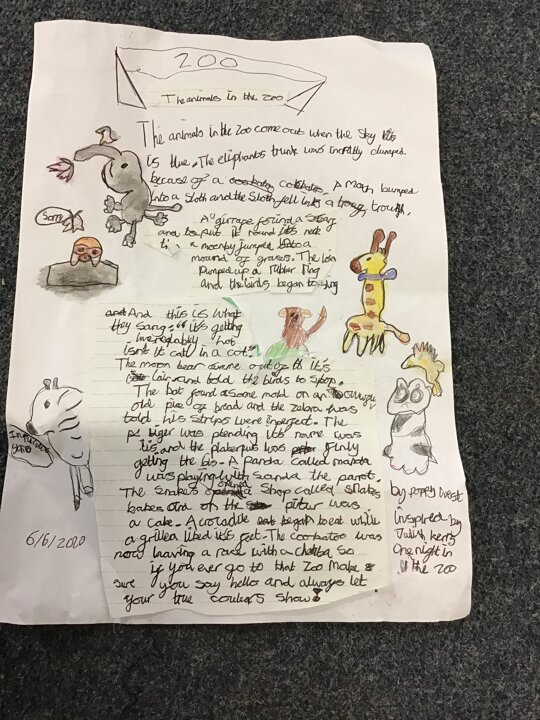 ZOO
The animals in the zoo
The animals in the zoo come out when the sky
is blue. The eliphants trunk was incrdtly clumped
because of a A Moth bumped
into a Sloth and the Sloth fell into a trouth.
Sorry
A girrape found a
and to put it round it's neck
a moonby jumped into a
mound of grass. The lion
Pumped up a rubber ring
and the birds began to sing
And this is what
they sang: "it's getting
hot
isnt it cold in a cot."
The moon bear came out of it's
lair and told the birds to stop.
The bat found some mold on an
old pice of bread and the zebra was
told his strips were inperfect. The
tiger was ptending it's name was
tis and the platerpus was Finly
getting the A panda called manda
was playing with sanda the parrot.
The snakes opened a shop called snakes
bakes and of the pitur was
a cake. A crocadile began to eat while
a grillea liked it's feet. The cookatoo was
now having a race with a so
if you ever go to that Zoo Make
sure you say hello and always let
your true coulers show!
by
inspired by
Judith kerrs
One night in
the zoo
6/6/2020